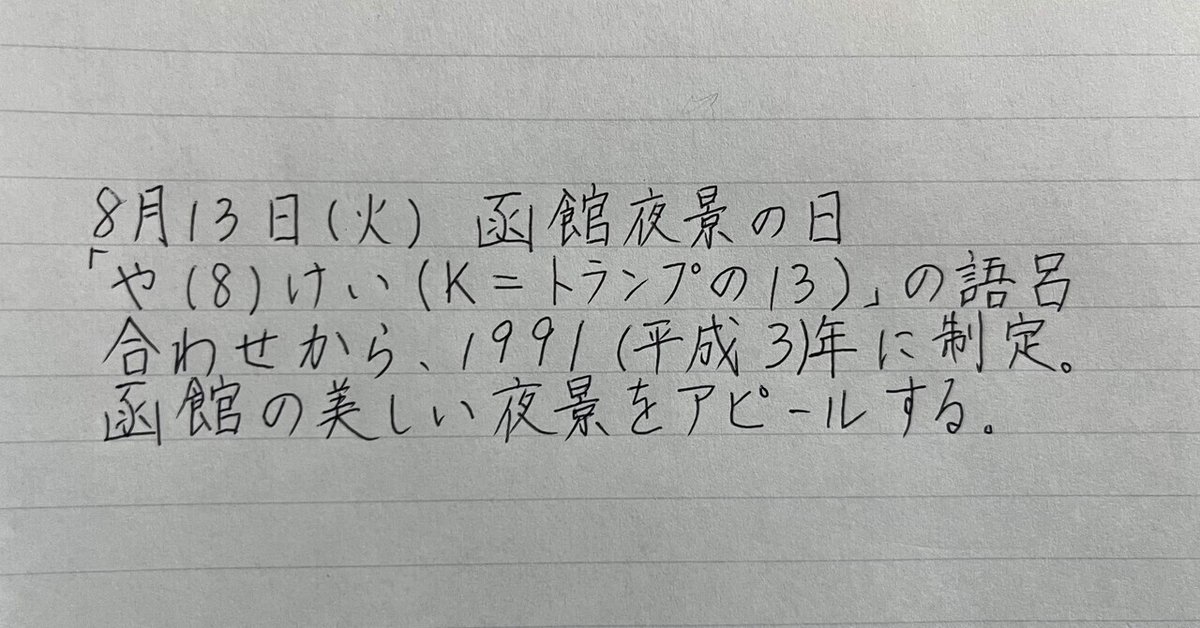 8月13日(火) 函館夜景の日
「や(8)けい(K=トランプの13)」の語呂
合わせから、1991(平成3)年に制定。
函館の美しい夜景をアピールする。